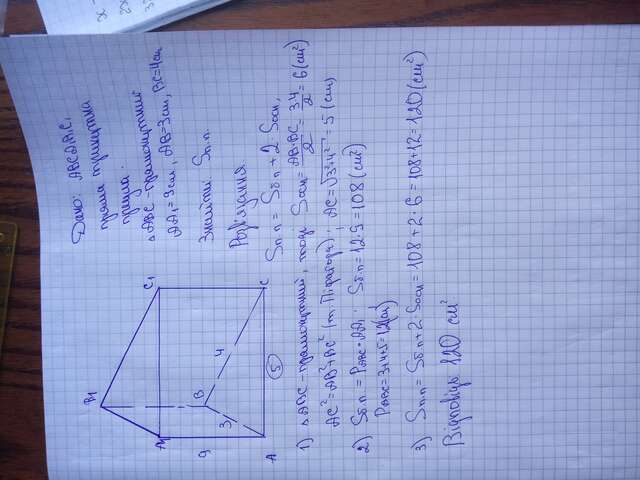 Дано: ABCA1B1C1
пряма трикутна
призма.
△ABC - прямокутний
AA1 = 9см, AB = 3см, BC = 4см
Знайти: Sп.п.
Розв'язання
Sп.п = Sб.п + 2·Sосн,
1) △ABC - прямокутний, тоді Sосн = AB·BC/2 = 3·4/2 = 6 (см²)
AC² = AB² + BC² (т. Піфагора); AC = √3²+4² = 5 (см)
2) Sб.п = PABC · AA1; Sб.п = 12·9 = 108 (см²)
PABC = 3+4+5 = 12 (см)
3) Sп.п = Sб.п + 2·Sосн = 108 + 2·6 = 108 + 12 = 120 (см²)
Відповідь 120 см²
B1
A1
C1
9
B
3
4
5
A
C